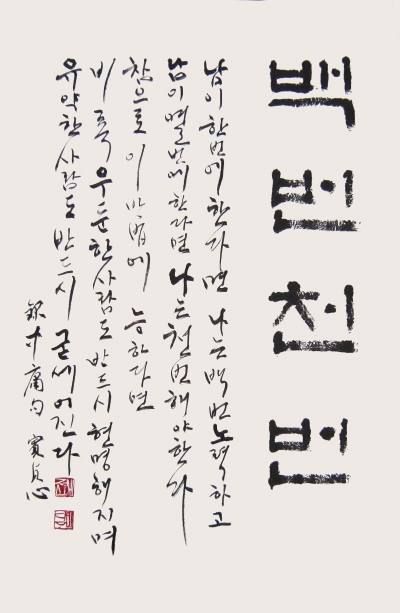 백번천번
남이 한번에 한다면 나는 백번 노력하고
남이 열번에 한다면 나는 천번 해야한다
참으로 이 방법에 능하다면
비록 우둔한 사람도 반드시 현명해지며
유약한 사람도 반드시 굳세어진다
錄中庸句